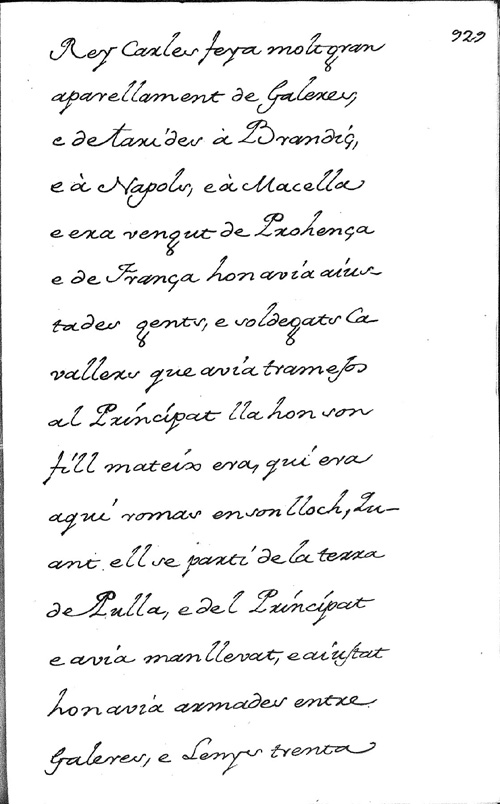 929
Rey Carles feya molt gran
aparellament de Galeres,
e de taride​s à Brandiç,
e à Napols, e à Macella
e era vengut de Prohença
e de França hon avia aius-
tades gents, e soldegats Ca-
vallers que avia tramesos
al Príncipat lla hon son
fill mateix era, qui era
aqui romas en son lloch, Qu-
ant ell se partí de la terra
de Pulla, e del Príncípat
e avia manllevat, e aiustat
hon avia armades entre
Galeres, e Lenys trenta